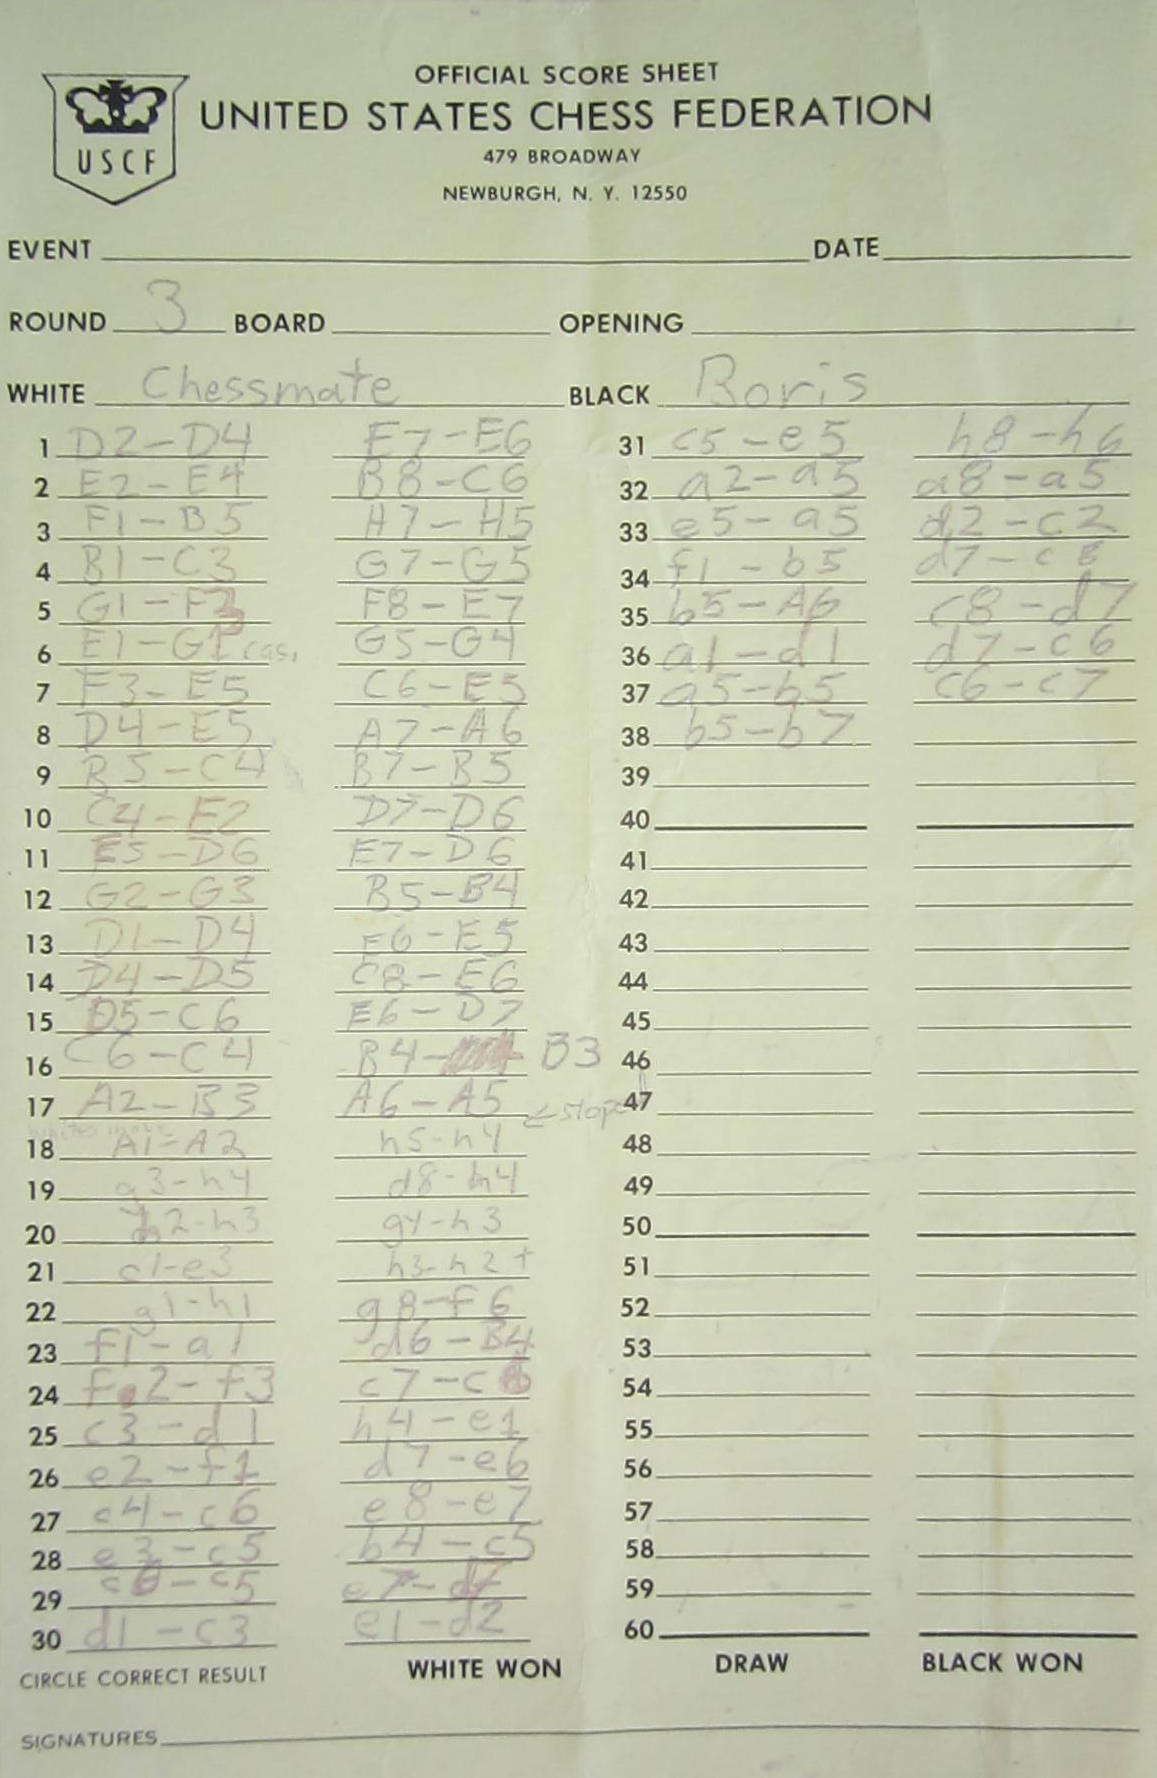 OFFICIAL SCORE SHEET
UNITED STATES CHESS FEDERATION
USCF
479 BROADWAY
NEWBURGH, N. Y. 12550
EVENT DATE
ROUND 3 BOARD OPENING
WHITE Chessmate BLACK Boris
1 D2-D4 E7-E6 31 c5-e5 h8-h6
2 E2-E4 B8-C6 32 a2-a5 a8-a5
3 F1-B5 H7-H5 33 e5-a5 d2-c2
4 B1-C3 G7-G5 34 f1-b5 d7-c8
5 G1-F3 F8-E7 35 b5-A6 c8-d7
6 E1-G1 cas. G5-G4 36 a1-d1 d7-c6
7 F3-E5 C6-E5 37 a5-b5 c6-c7
8 D4-E5 A7-A6 38 b5-b7
9 B5-C4 B7-B5 39
10 C4-E2 D7-D6 40
11 E5-D6 E7-D6 41
12 G2-G3 B5-B4 42
13 D1-D4 E6-E5 43
14 D4-D5 C8-E6 44
15 D5-C6 E6-D7 45
16 C6-C4 B4- B3 46
17 A2-B3 A6-A5 47
18 A1-A2 h5-h4 48
19 g3-h4 d8-h4 49
20 h2-h3 g4-h3 50
21 c1-e3 h3-h2+ 51
22 g1-h1 g8-f6 52
23 f1-a1 d6-B4 53
24 f2-f3 c7-c6 54
25 c3-d1 h4-e1 55
26 e2-f1 d7-e6 56
27 c4-c6 e8-e7 57
28 e3-c5 b4-c5 58
29 c6-c5 e7-d7 59
30 d1-c3 e1-d2 60
CIRCLE CORRECT RESULT WHITE WON DRAW BLACK WON
SIGNATURES